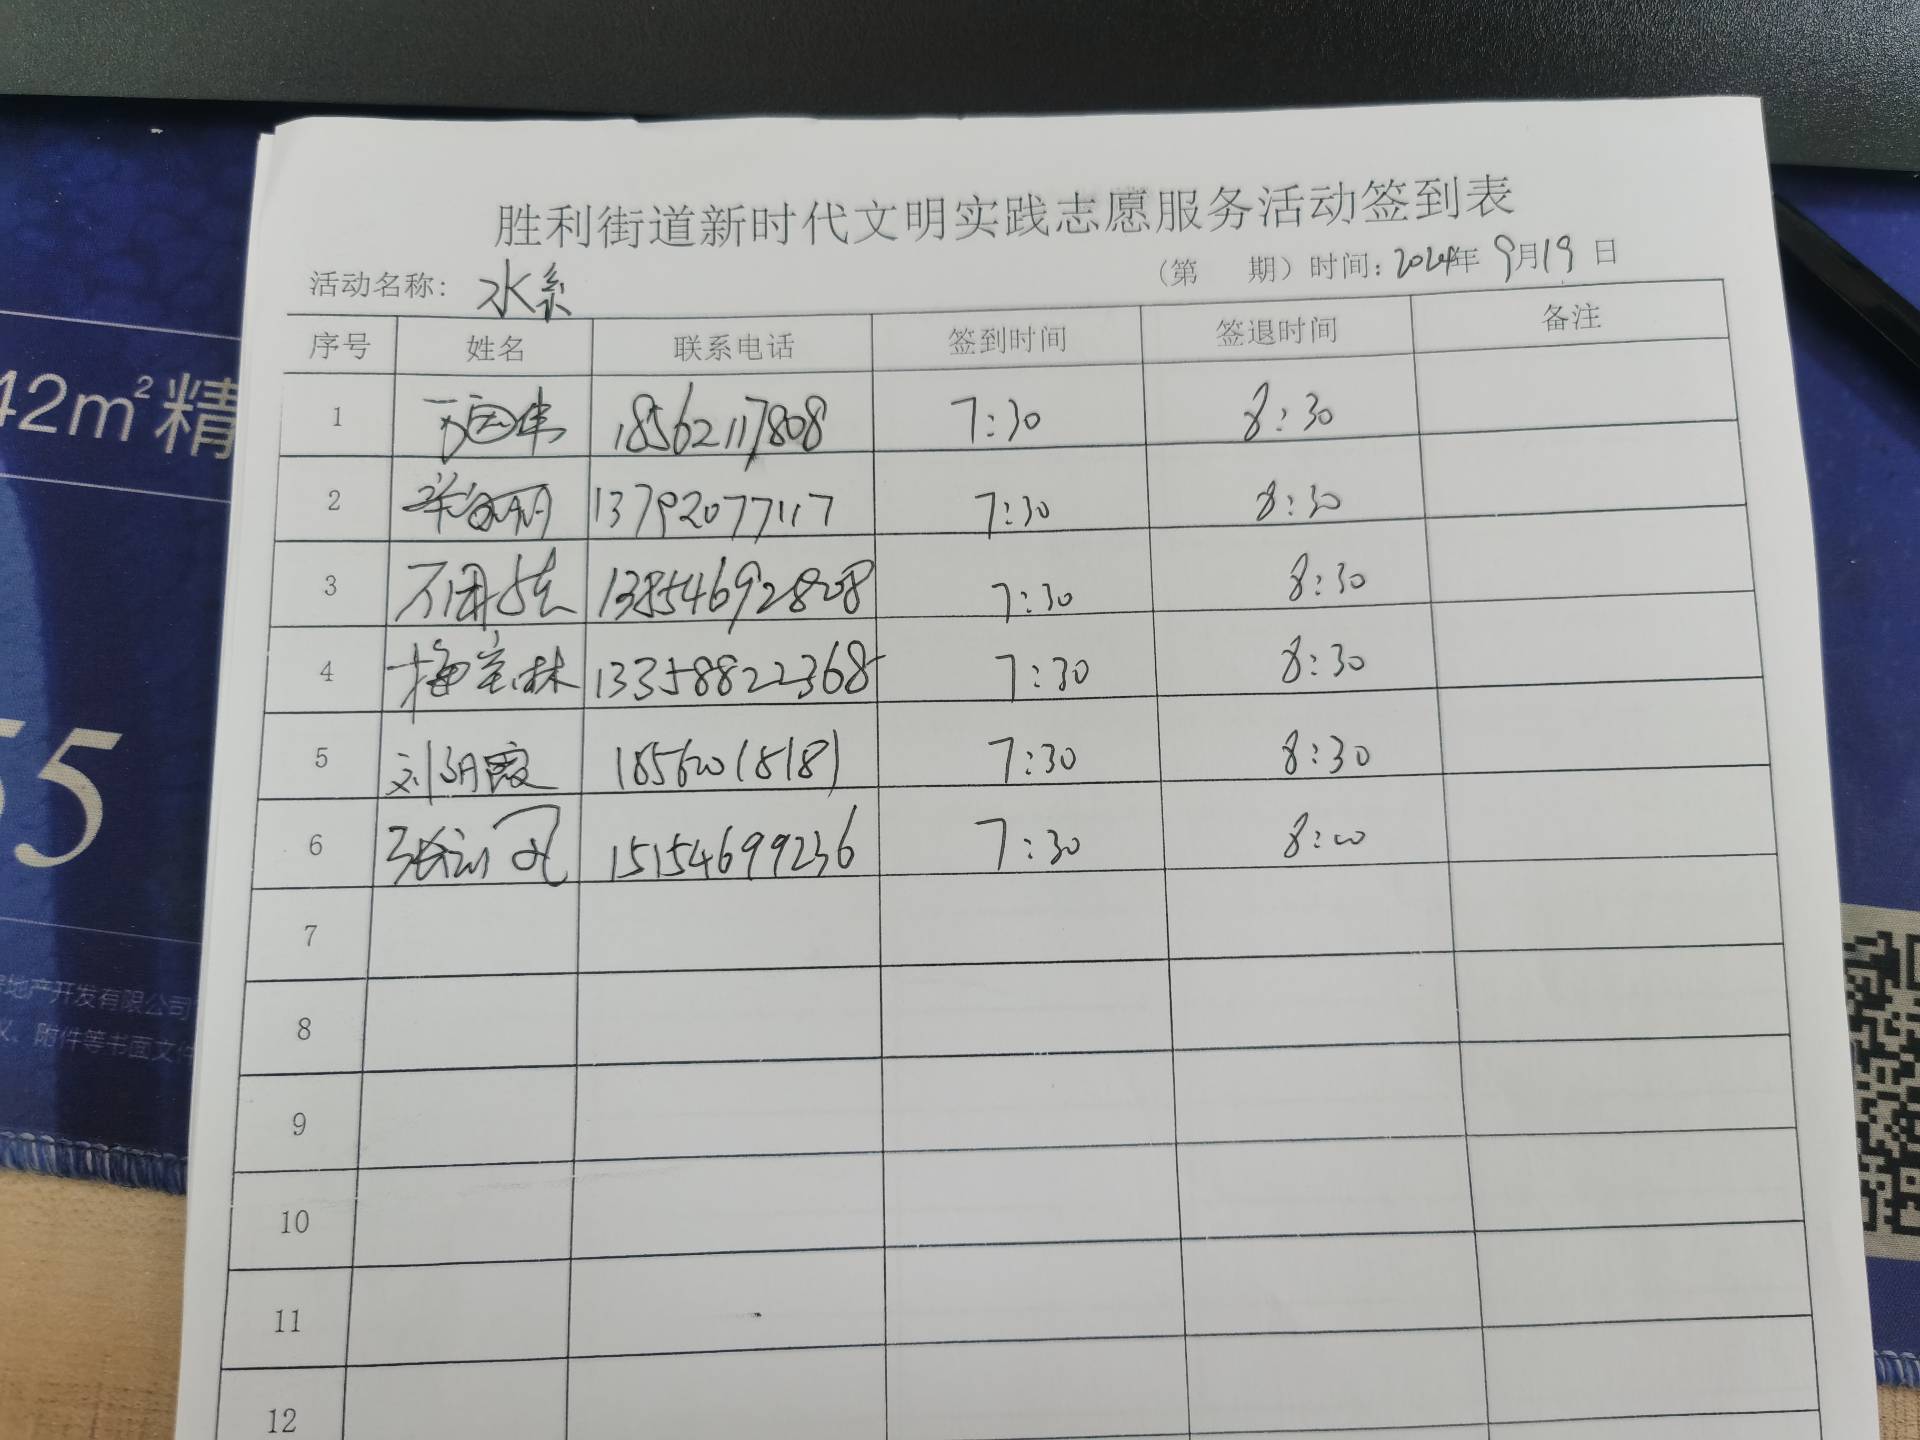 胜利街道新时代文明实践志愿服务活动签到表
活动名称: 水系 (第 期) 时间: 2024年 9月19日
序号 姓名 联系电话 签到时间 签退时间 备注
1 18562117808 7:30 8:30
2 13792077117 7:30 8:30
3 13854692808 7:30 8:30
4 梅宝林 13358822368 7:30 8:30
5 刘明霞 18562018181 7:30 8:30
6 15154699236 7:30 8:00
7
8
9
10
11
12
42m²精
55
地产开发有限公司
附件等书面文件